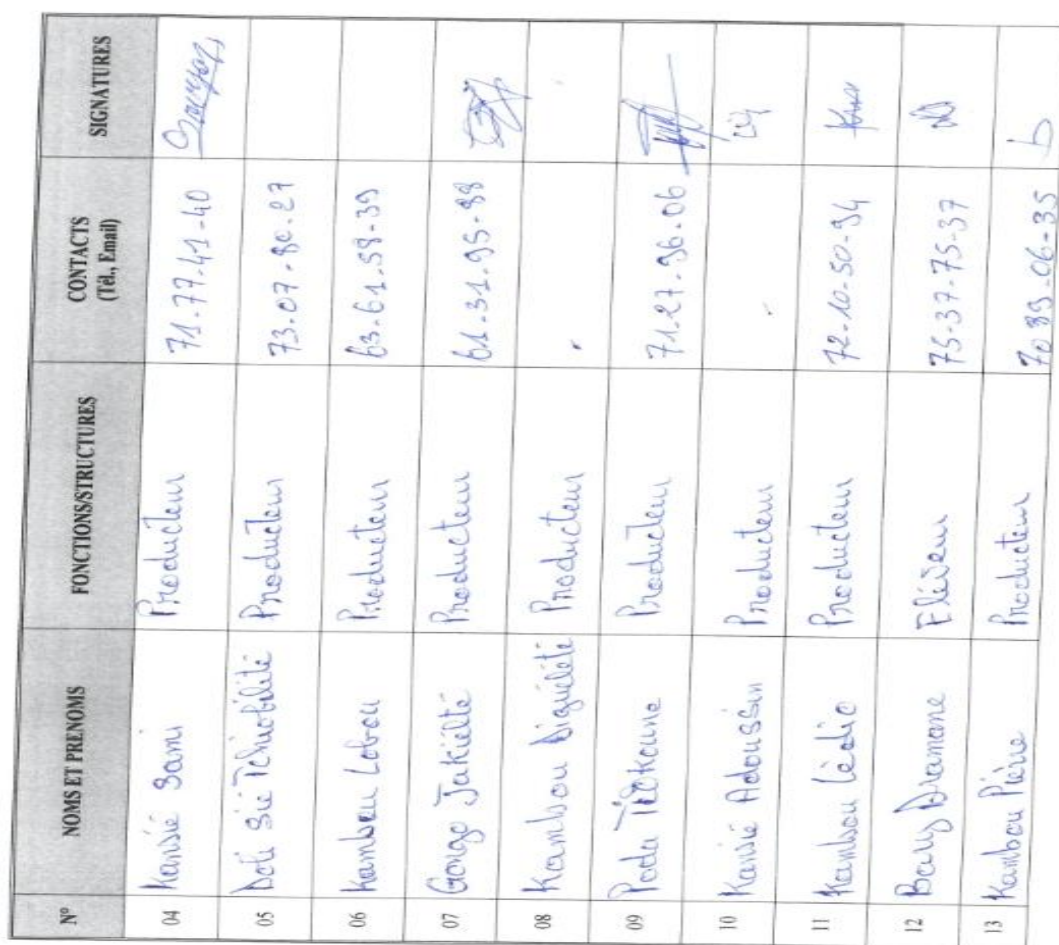 N° NOMS ET PRENOMS FONCTIONS/STRUCTURES CONTACTS (Tél., Email) SIGNATURES
04 Kansié Sami Producteur 71-77-41-40
05 Sié Producteur 73-07-80-27
06 Kambou Lobou Producteur 63-61-58-39
07 Gongo Jakiélté Producteur 61-31-95-88
08 Kambou Diguiélété Producteur
09 Poda Producteur 71-27-96-06
10 Kansié Adoussin Producteur
11 Kambou Lèdio Producteur 72-10-50-94
12 Bary Dramane Eléveur 75-37-75-37
13 Kambou Pièrre Producteur 70 89-06-35